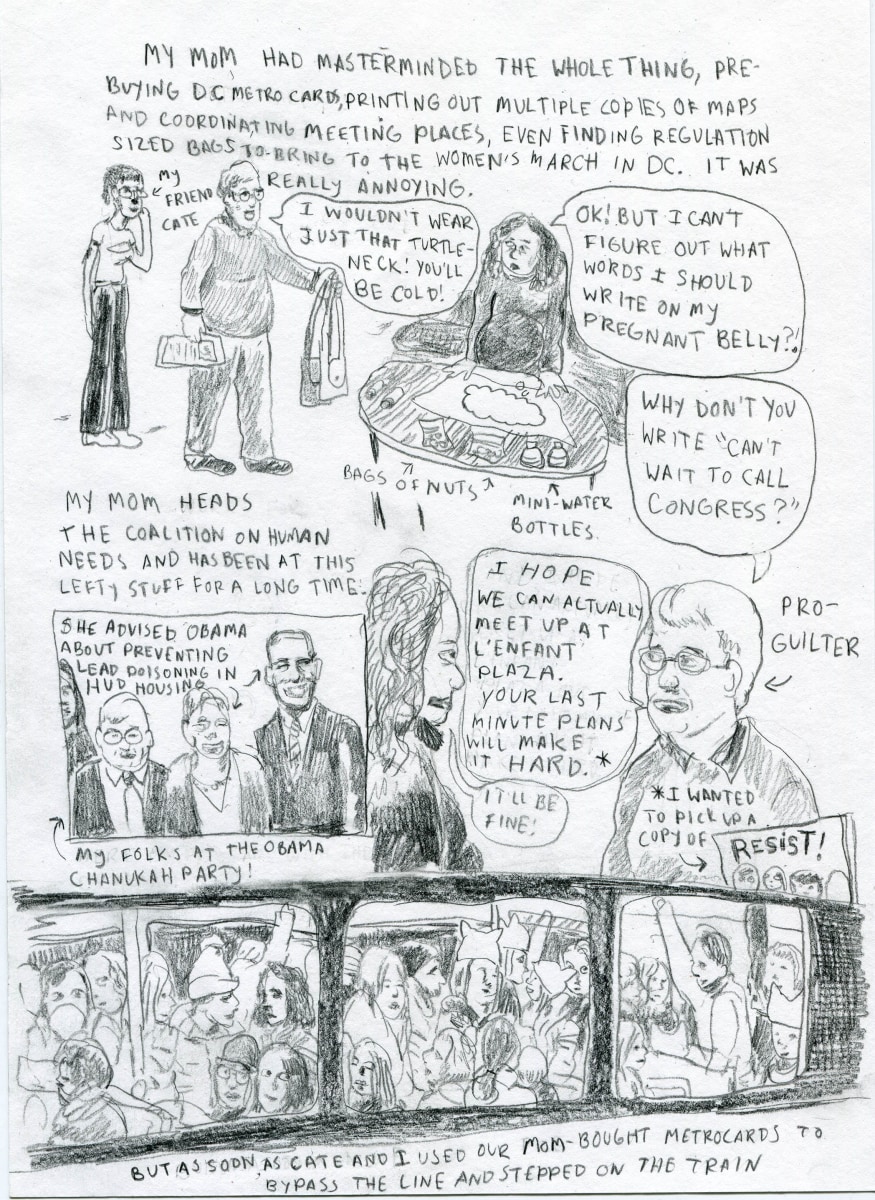 MY MOM HAD MASTERMINDED THE WHOLE THING, PRE-
BUYING DC METRO CARDS, PRINTING OUT MULTIPLE COPIES OF MAPS
AND COORDINATING MEETING PLACES, EVEN FINDING REGULATION
SIZED BAGS TO BRING TO THE WOMEN'S MARCH IN DC. IT WAS
REALLY ANNOYING.
MY
FRIEND
CATE
I WOULDN'T WEAR
JUST THAT TURTLE-
NECK! YOU'LL
BE COLD!
OK! BUT I CAN'T
FIGURE OUT WHAT
WORDS I SHOULD
WRITE ON MY
PREGNANT BELLY?!
WHY DON'T YOU
WRITE "CAN'T
WAIT TO CALL
CONGRESS?"
BAGS OF NUTS
MINI-WATER
BOTTLES.
MY MOM HEADS
THE COALITION ON HUMAN
NEEDS AND HAS BEEN AT THIS
LEFTY STUFF FOR A LONG TIME.
SHE ADVISED OBAMA
ABOUT PREVENTING
LEAD POISONING IN
HUD HOUSING
MY FOLKS AT THE OBAMA
CHANUKAH PARTY!
I HOPE
WE CAN ACTUALLY
MEET UP AT
L'ENFANT
PLAZA.
YOUR LAST
MINUTE PLANS
WILL MAKE
IT HARD.*
IT'LL BE
FINE!
PRO-
GUILTER
*I WANTED
TO PICK UP A
COPY OF
RESIST!
BUT AS SOON AS CATE AND I USED OUR MOM-BOUGHT METROCARDS TO
BYPASS THE LINE AND STEPPED ON THE TRAIN